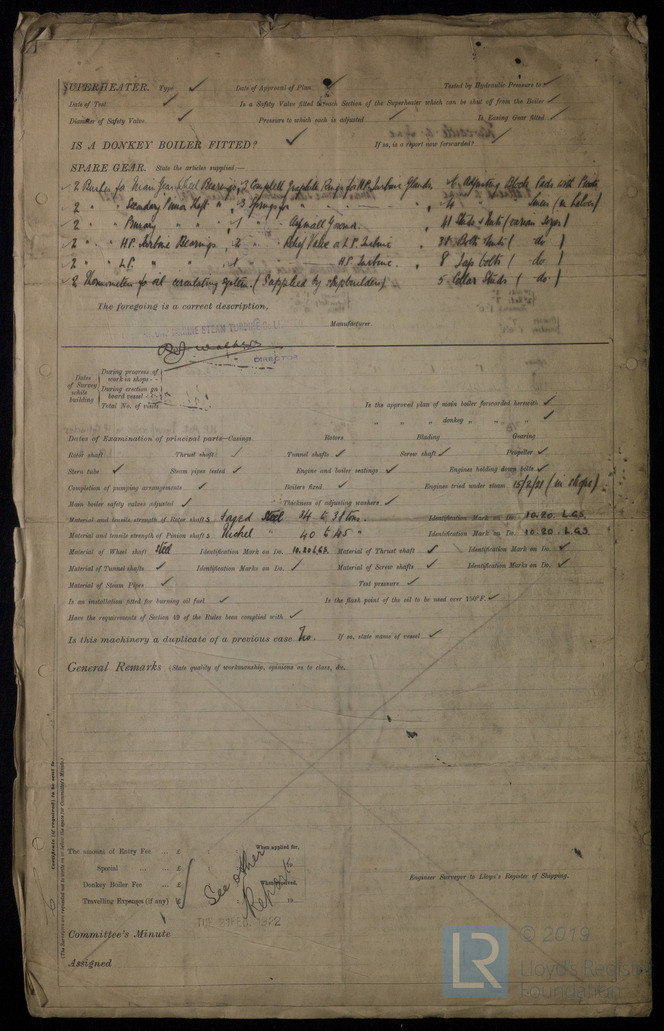 SUPERHEATER. Type ✓ Date of Approval of Plan ✓ Tested by Hydraulic Pressure to ✓
Date of Test ✓ Is a Safety Valve fitted to each Section of the Superheater which can be shut off from the Boiler ✓
Diameter of Safety Valve ✓ Pressure to which each is adjusted ✓ Is Easing Gear fitted ✓
IS A DONKEY BOILER FITTED? ✓ If so, is a report now forwarded? ✓
SPARE GEAR. State the articles supplied:—
2 Bushes for Main Gear Wheel Bearings, 2 Complete Graphite Rings for H.P. Turbine Glands 6 Adjusting Block Pads with
2 " " Secondary Pinion Shaft " 3 Springs for " 4 "
2 " " Primary " 1 " Aspinall Govnr. 41 Studs & Nuts (various sizes)
2 " " H.P. Turbine Bearings 2 " Relief Valve L.P. Turbine 38 Bolts & Nuts ( do )
2 " " L.P. " 1 " H.P. Turbine. 8 Tap bolts ( do )
2 Thermometers for oil circulating system. (Supplied by shipbuilders) 5 Collar Studs ( do )
The foregoing is a correct description,
MARINE STEAM TURBINE Co. Manufacturer.
DIRECTOR
Dates of Survey while building
During progress of work in shops - -
During erection on board vessel - -
Total No. of visits
Is the approved plan of main boiler forwarded herewith ✓
" " " donkey " " ✓
Dates of Examination of principal parts—Casings Rotors Blading Gearing
Rotor shaft Thrust shaft Tunnel shafts ✓ Screw shaft ✓ Propeller ✓
Stern tube ✓ Steam pipes tested ✓ Engine and boiler seatings ✓ Engines holding down bolts ✓
Completion of pumping arrangements ✓ Boilers fixed ✓ Engines tried under steam 15/2/21 (in shops)
Main boiler safety valves adjusted ✓ Thickness of adjusting washers ✓
Material and tensile strength of Rotor shafts Forged Steel 34 to 38 tons. Identification Mark on Do. 10.20. L.G.S.
Material and tensile strength of Pinion shafts Nickel " 40 to 45 " Identification Mark on Do. 10.20. L.G.S.
Material of Wheel shaft Steel Identification Mark on Do. 10.20 L.G.S. Material of Thrust shaft ✓ Identification Mark on Do. ✓
Material of Tunnel shafts ✓ Identification Marks on Do. ✓ Material of Screw shafts ✓ Identification Marks on Do. ✓
Material of Steam Pipes ✓ Test pressure ✓
Is an installation fitted for burning oil fuel ✓ Is the flash point of the oil to be used over 150°F. ✓
Have the requirements of Section 49 of the Rules been complied with ✓
Is this machinery a duplicate of a previous case No. If so, state name of vessel ✓
General Remarks (State quality of workmanship, opinions as to class, &c.
The amount of Entry Fee ... £ When applied for,
Special ... £
Donkey Boiler Fee ... £ When received,
Travelling Expenses (if any) £ 19
See other Reports
Engineer Surveyor to Lloyd's Register of Shipping.
TUE. 21 FEB. 1922
Committee's Minute
Assigned
Certificate (if required) to be sent to
(The Surveyors are requested not to write on or below the space for Committee's Minute.)
LR © 2019
Lloyd's Register
Foundation